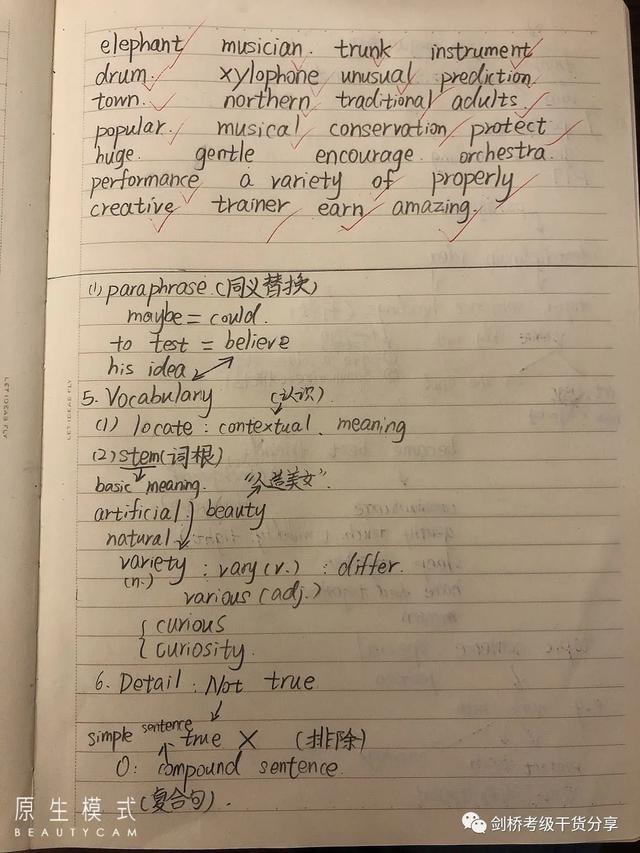 elephant musician. trunk instrument
drum. xylophone unusual prediction
town. northern traditional adults.
popular. musical conservation protect
huge. gentle encourage. orchestra.
performance a variety of properly
creative trainer earn amazing.
(1) paraphrase.(同义替换)
maybe = could.
to test = believe
his idea
5. Vocabulary (认识)
(1) locate : contextual meaning
(2) stem(词根)
basic meaning. "人造美女".
artificial } beauty
natural
variety : vary(v.) : differ.
(n.) various (adj.)
{ curious
{ curiosity.
6. Detail : Not true
simple sentence true × (排除)
O: compound sentence
(复合句).
LET IDEAS FLY
LET IDEAS FLY
原生模式
BEAUTYCAM
剑桥考级干货分享